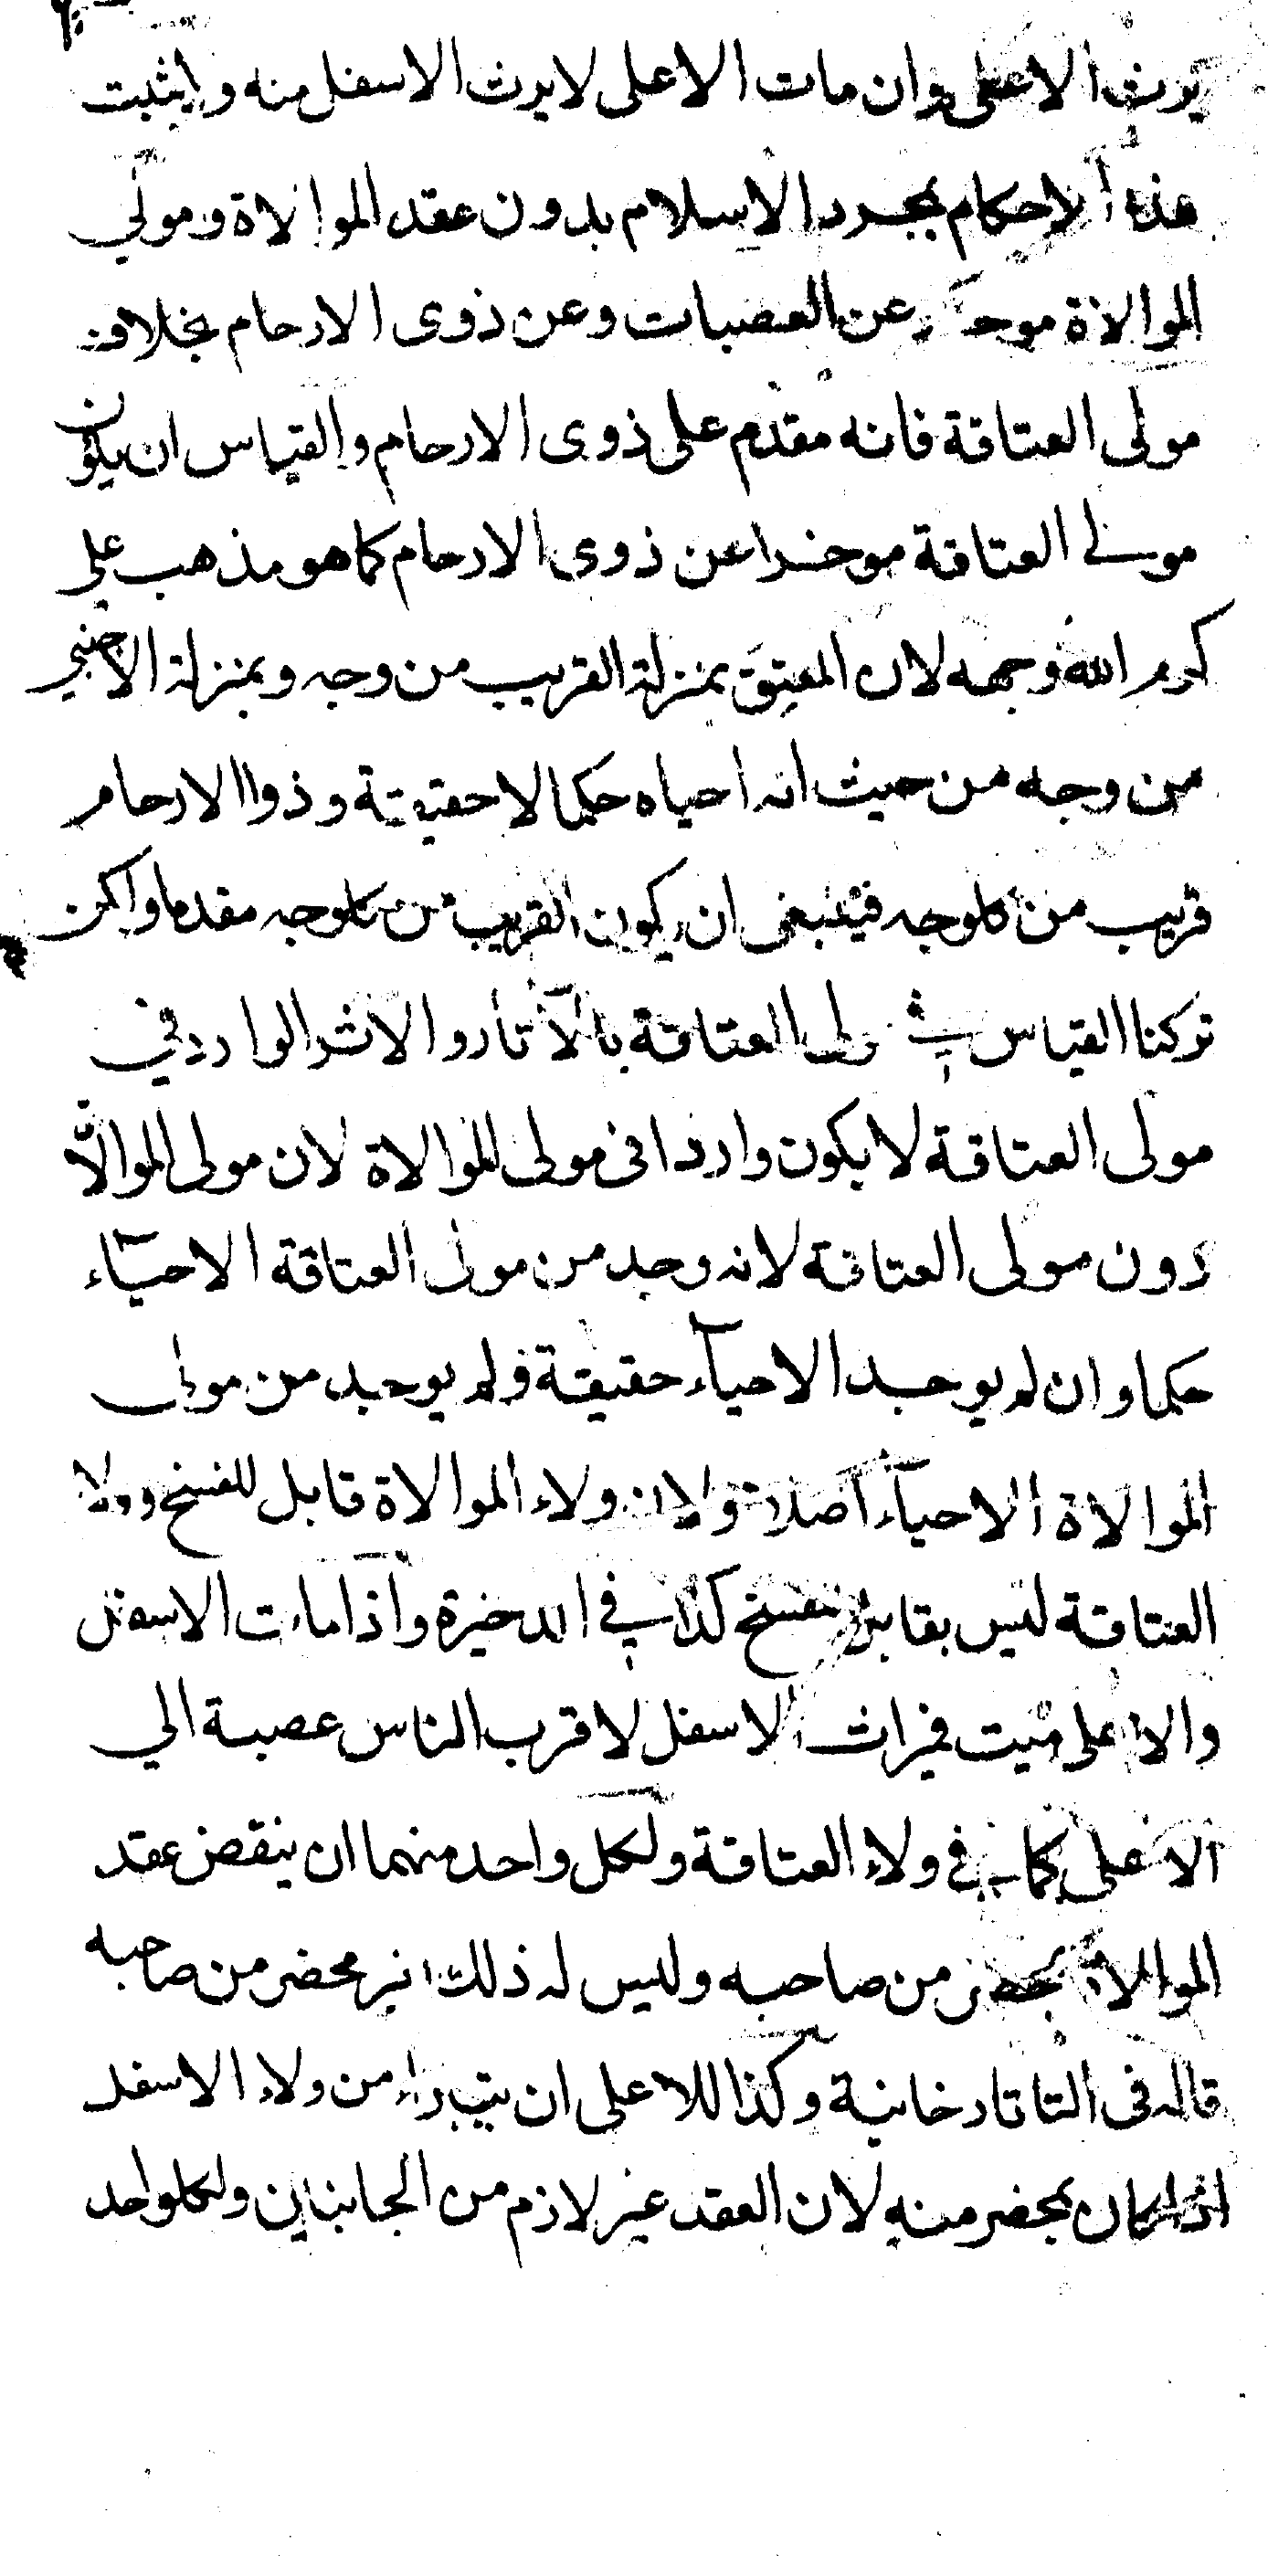 يرث الاعلى وان مات الاعلى لا يرث الاسفل منه ولا يثبت
هذه الاحكام بمجرد الاسلام بدون عقد الموالاة ومولى
الموالاة موخر عن العصبات وعن ذوى الارحام بخلاف
مولى العتاقة فانه مقدم على ذوى الارحام والقياس ان يكون
مولى العتاقة موخرا عن ذوى الارحام كما هو مذهب على
كرم الله وجهه لان المعتِقَ بمنزلة القريب من وجه وبمنزلة الاجنبي
من وجه من حيث انه احياه حكما لا حقيقة وذوا الارحام
قريب من كلوجه فينبغى ان يكون القريب من كلوجه مقدما ولكن
تركنا القياس في مولى العتاقة بالآثار والاثر الوارد في
مولى العتاقة لا يكون واردا فى مولى الموالاة لان مولى الموالاة
دون مولى العتاقة لانه وجد من مولى العتاقة الاحيآء
حكما وان لم يوجد الاحيآء حقيقة ولم يوجد من مولى
الموالاة الاحيآء اصلا ولان ولاء الموالاة قابل للفسخ وولا
العتاقة ليس بقابل للفسخ كذا في الدخيرة واذا مات الاسفل
والاعلى ميت فميراث الاسفل لاقرب الناس عصبة الي
الاعلى كما في ولاء العتاقة ولكل واحد منهما ان ينقض عقد
الموالاة بمحضر من صاحبه وليس له ذلك بغير محضر من صاحبه
قاله فى التاتارخانية وكذا للاعلى ان يتبراء من ولاء الاسفل
اذا كان بمحضر منه لان العقد غير لازم من الجانبين ولكلواحد